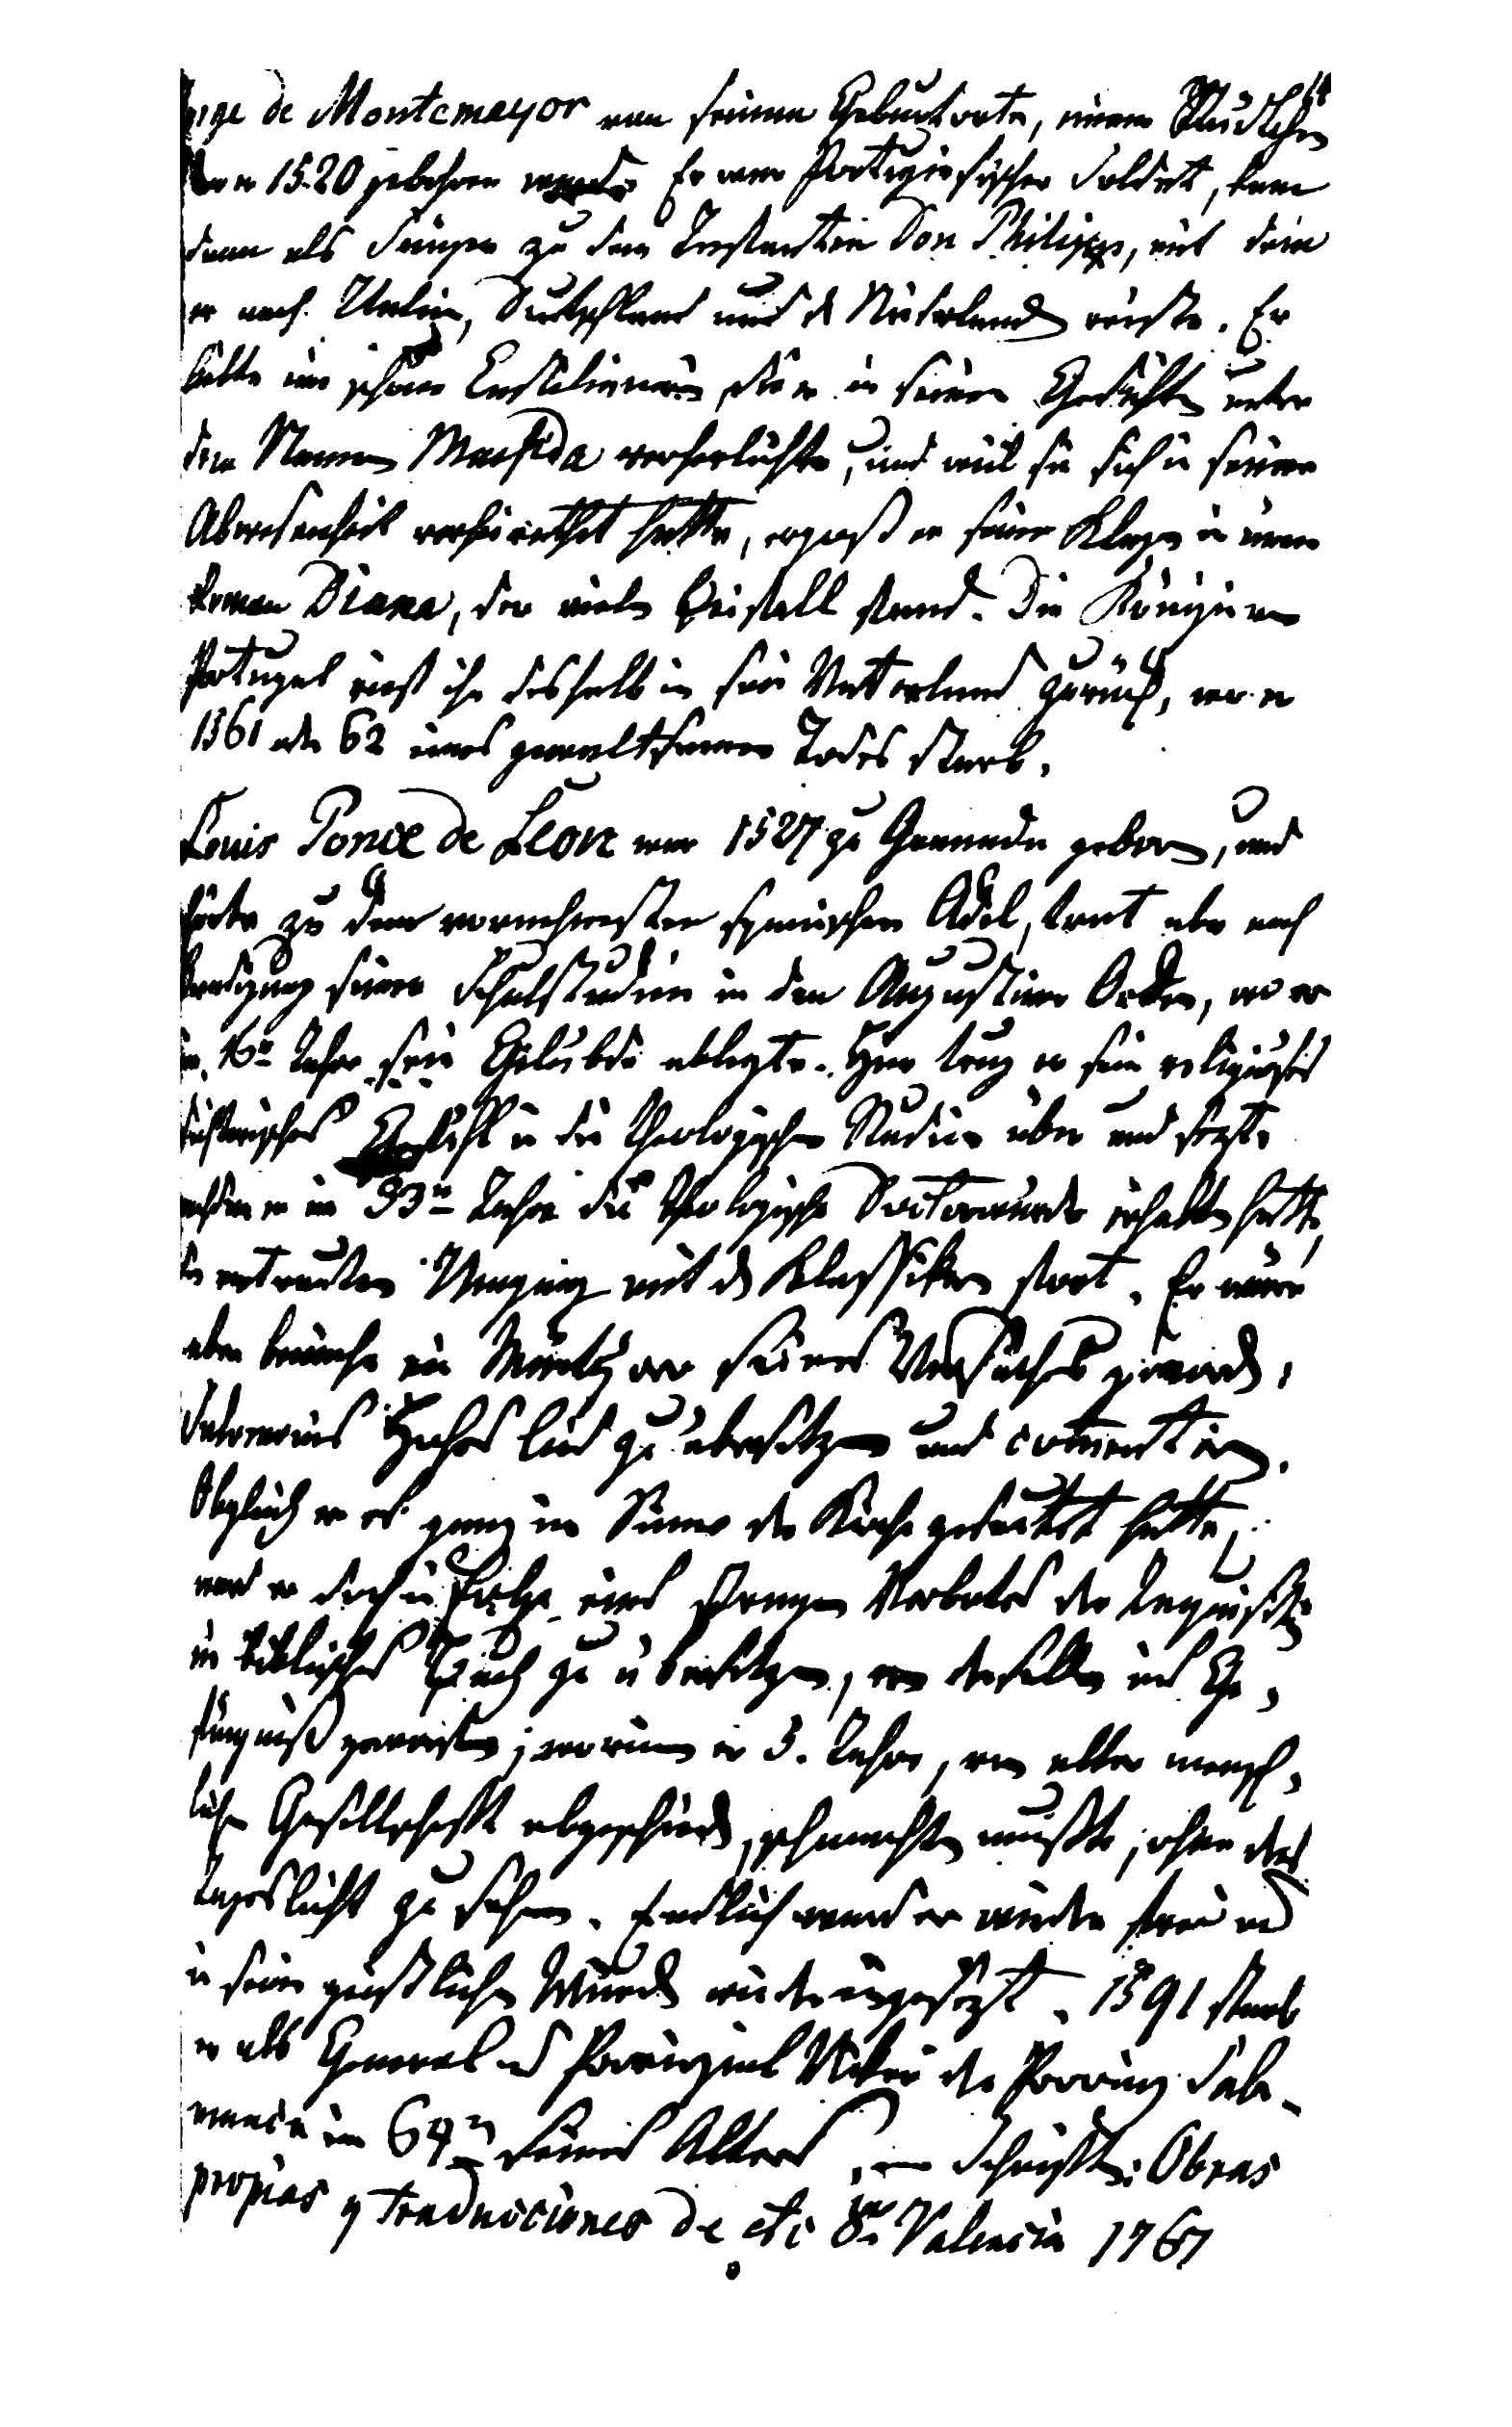 orge de Montemayor von seinem Geburtsorte, einem Städtchen
wo er 1520 gebohren wurde. Er war Portugiesischer Soldat, kam
dann als Sänger zu dem Infanten Don Philipp, mit dem
er nach Italien, Deutschland und d Niederland reiste. Er
liebte eine schöne Castilianerin, die er in seinen Gedichten unter
dem Namen Marfida verherrlichte, und weil sie sich in seiner
Abwesenheit verheirathet hatte, ergoß er seine Klage in einem
Roman Diana, der vieln Beifall fand. Die Königin von
Portugal rief ihn deshalb in sein Vaterland zurück, wo er
1561 oder 62 eines gewaltsamen Todes starb.
Louis Ponce de Leon war 1527 zu Granada geboren, und
hörte zu dem vornehmsten spanischen Adel, trat aber nach
Beendigung seiner Schulstudien in den Augustiner Orden, wo er
im 16n Jahre sein Gelübde ablegte. Hier trug er sein religiöses
dichterisches Gefühl in die theologischen Studien über und setzte
nachdem er im 33n Jahre die theologische Doctorwürde erhalten hatte,
den vertrauten Umgang mit d Klassikern fort. Er wäre
aber beinahe ein Märtyrer seines Versuches geword,
Salomonis Hohes Lied zu übersetzen und comentiren.
Obgleich er es ganz im Sinne der Kirche gedeutet hatte,
ward er doch in Folge eines strengen Verbotes der Inquisition
ein biblisches Buch zu übersetzen, von derselben ins Ge,
fängniß geworfen, worinn er 5. Jahre, von aller mensch,
lichen Gesellschaft abgeschieden, schmachten mußte, ohne das
Tageslicht zu sehen. Endlich ward er wieder frei und
in seine geistlichen Würden wiedereingesetzt. 1591 starb
er als General und Provinzial Vikar der Provinz Sala-
manca im 64n seines Alters. Schriften: Obras
propias y traduciones de Valencia 1761